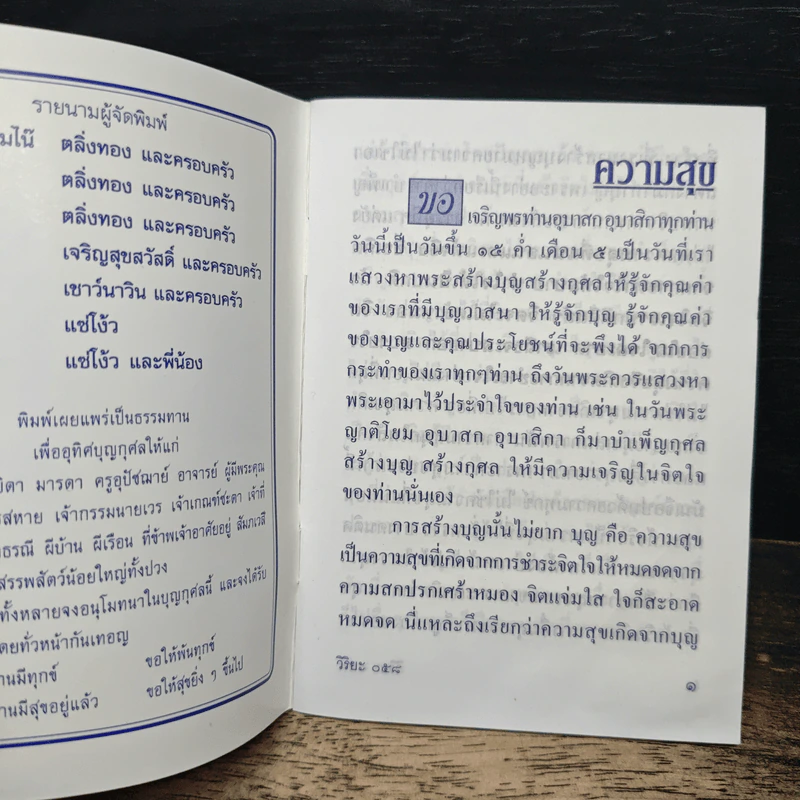 รายนามผู้จัดพิมพ์
ตลิ่งทอง และครอบครัว
ตลิ่งทอง และครอบครัว
ตลิ่งทอง และครอบครัว
เจริญสุขสวัสดิ์ และครอบครัว
เชาว์นาวิน และครอบครัว
แซ่โง้ว
แซ่โง้ว และพี่น้อง
พิมพ์เผยแพร่เป็นธรรมทาน
เพื่ออุทิศบุญกุศลให้แก่
มารดา ครูอุปัชฌาย์ อาจารย์ ผู้มีพระคุณ
สหาย เจ้ากรรมนายเวร เจ้าเกณฑ์ชะตา เจ้าที่
ธรณี ผีบ้าน ผีเรือน ที่ข้าพเจ้าอาศัยอยู่ สัมภเวสี
สรรพสัตว์น้อยใหญ่ทั้งปวง
ทั้งหลายจงอนุโมทนาในบุญกุศลนี้ และจงได้รับ
โดยทั่วหน้ากันเทอญ
มีทุกข์ ขอให้พ้นทุกข์
มีสุขอยู่แล้ว ขอให้สุขยิ่ง ๆ ขึ้นไป
ความสุข
ขอ เจริญพรท่านอุบาสก อุบาสิกาทุกท่าน
วันนี้เป็นวันขึ้น ๑๕ ค่ำ เดือน ๕ เป็นวันที่เรา
แสวงหาพระสร้างบุญสร้างกุศลให้รู้จักคุณค่า
ของเราที่มีบุญวาสนา ให้รู้จักบุญ รู้จักคุณค่า
ของบุญและคุณประโยชน์ที่จะพึงได้ จากการ
กระทำของเราทุกๆท่าน ถึงวันพระควรแสวงหา
พระเอามาไว้ประจำใจของท่าน เช่น ในวันพระ
ญาติโยม อุบาสก อุบาสิกา ก็มาบำเพ็ญกุศล
สร้างบุญ สร้างกุศล ให้มีความเจริญในจิตใจ
ของท่านนั่นเอง
การสร้างบุญนั้นไม่ยาก บุญ คือ ความสุข
เป็นความสุขที่เกิดจากการชำระจิตใจให้หมดจดจาก
ความสกปรกเศร้าหมอง จิตแจ่มใส ใจก็สะอาด
หมดจด นี่แหละถึงเรียกว่าความสุขเกิดจากบุญ
วิริยะ ๐๕๘
๑